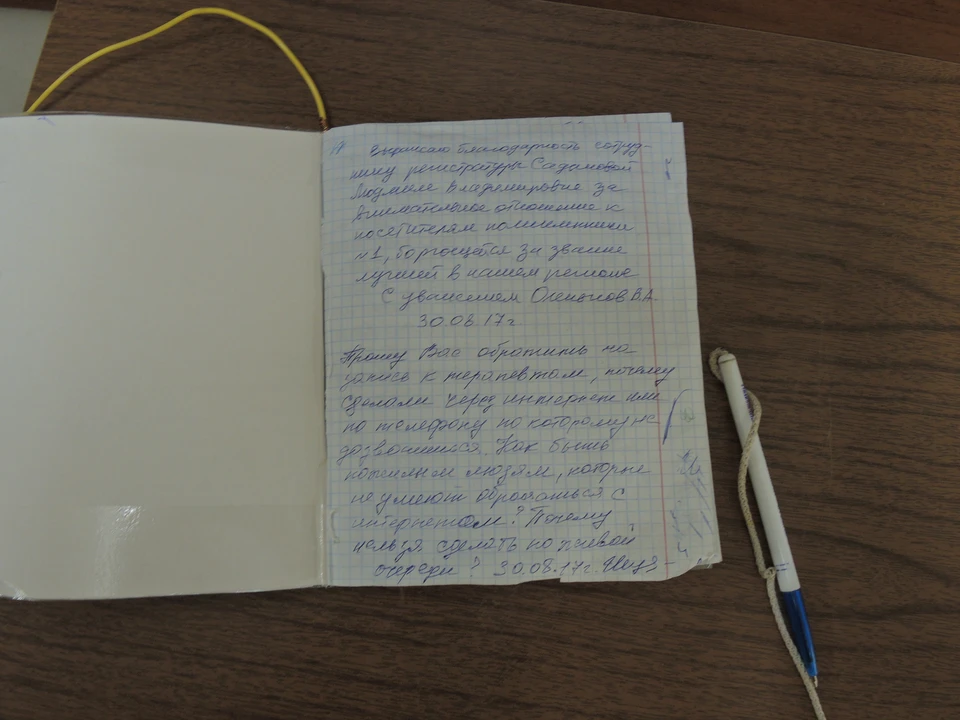 Выражаю благодарность сотруд-
нику регистратуры Садыковой
Людмиле Владимировне за
внимательное отношение к
посетителям поликлиники
№1, борющейся за звание
лучшей в нашем регионе
С уважением В.А.
30.08.17г.
Прошу Вас обратить на
запись к терапевтам, почему
сделали через интернет или
по телефону по которому не
дозвониться. Как быть
пожилым людям, которые
не умеют обращаться с
интернетом? Почему
нельзя сделать по живой
очереди? 30.08.17г.